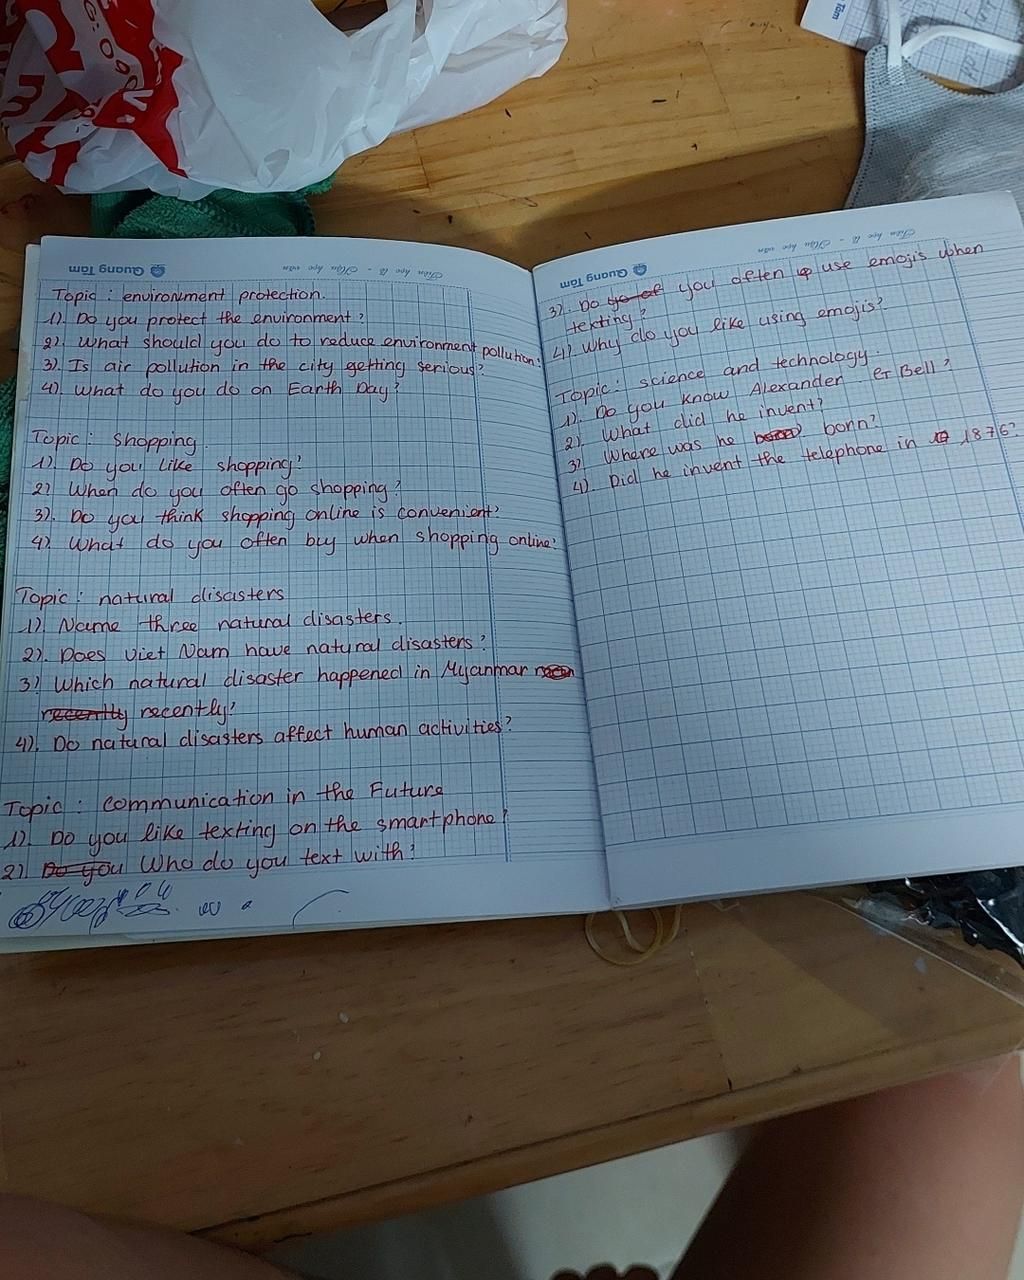 Quang Tâm
Tiên học lễ - Hậu học văn
Topic : environment protection.
1). Do you protect the environment?
2). What should you do to reduce environment pollution?
3). Is air pollution in the city getting serious?
4). What do you do on Earth Day?
Topic : Shopping.
1) Do you like shopping?
2) When do you often go shopping?
3). Do you think shopping online is convenient?
4) What do you often buy when shopping online?
Topic : natural disasters
1). Name three natural disasters.
2). Does Viet Nam have natural disasters?
3) Which natural disaster happened in Myanmar
recently recently?
4). Do natural disasters affect human activities?
Topic : Communication in the Future
1). Do you like texting on the smartphone?
2) Do you Who do you text with?
Quang Tâm
Tiên học lễ - Hậu học văn
3). Do you often use emojis when
texting?
4) Why do you like using emojis?
Topic : science and technology.
1). Do you know Alexander . G Bell?
2) What did he invent?
3) Where was he born?
4). Did he invent the telephone in 1876?
Tâm